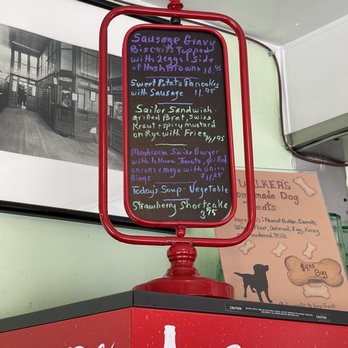 Sausage Gravy
Biscuits topped
with 2 eggs & Side
of Hash Browns
Sweet Potato Pancakes
with Sausage 11.95
Sailor Sandwich
grilled Brat, Swiss
Kraut & spicy mustard
on Rye with Fries
Mushroom Swiss Burger
with lettuce, Tomato, grilled
onions & mayo with Onion
Rings
Today's Soup - Vegetable
Strawberry Shortcake
3.95
Dog
Peanut Butter, Carrots,
Flour, Oatmeal, Egg, Honey
Milk
Bag